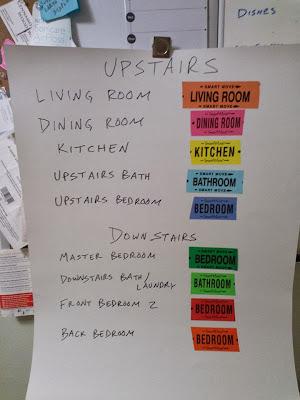 DISHES
UPSTAIRS
LIVING ROOM
SMART MOVE
LIVING ROOM
SMART MOVE
DINING ROOM
DINING ROOM
KITCHEN
KITCHEN
UPSTAIRS BATH
SMART MOVE
BATHROOM
SMART MOVE
UPSTAIRS BEDROOM
BEDROOM
DOWNSTAIRS
MASTER BEDROOM
SMART MOVE
BEDROOM
SMART MOVE
DOWNSTAIRS BATH/
LAUNDRY
BATHROOM
FRONT BEDROOM 2
BEDROOM
BACK BEDROOM
BEDROOM